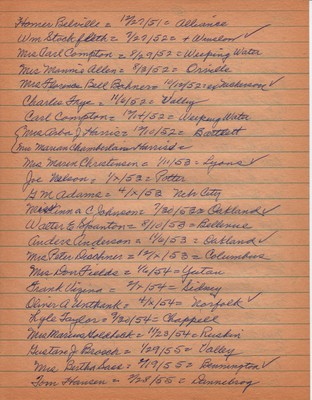 Homer Belville = 12/27/51 = Alliance
Wm Stockfleth = 7/27/52 = + Winslow ✓
Mrs Carl Compton = 8/29/52 = Weeping Water
Mrs Minnie Allen = 9/3/52 = Orville
Mrs Florence Bell Bohners = 11/19/52 =
Charles Frye = 11/6/52 = Valley
Carl Compton = 12/14/52 = Weeping Water
Mrs J Harris = 12/10/52 = Bartlett
Mrs Marian Chamberlain Harris =
Mrs Maren Christensen = 1/11/53 = Lyons ✓
Joe Nelson = 1/x/53 = Potter
G M Adams = 4/x/53 Nebr City
Minna C Johnson = 7/30/53 = Oakland ✓
Walter E = 8/10/53 = Bellevue
Anders Anderson = 12/6/53 = Oakland ✓
Mrs Peter Deschner = 12/x/53 = Columbus
Mrs Don Fields = 1/6/54 = Yutan
Frank = /x/54 = Sidney
Oliver A Unthank = 4/x/54 = Norfolk ✓
Lyle Taylor = 9/20/54 = Chappell
Mrs Marius Holdhoch = 11/23/54 = Ruskin
Gustave J Brosch = 1/29/55 = Valley
Mrs Bertha Sass = 2/19/55 = Bennington ✓
Tom Hansen = 2/28/55 = Dannebrog